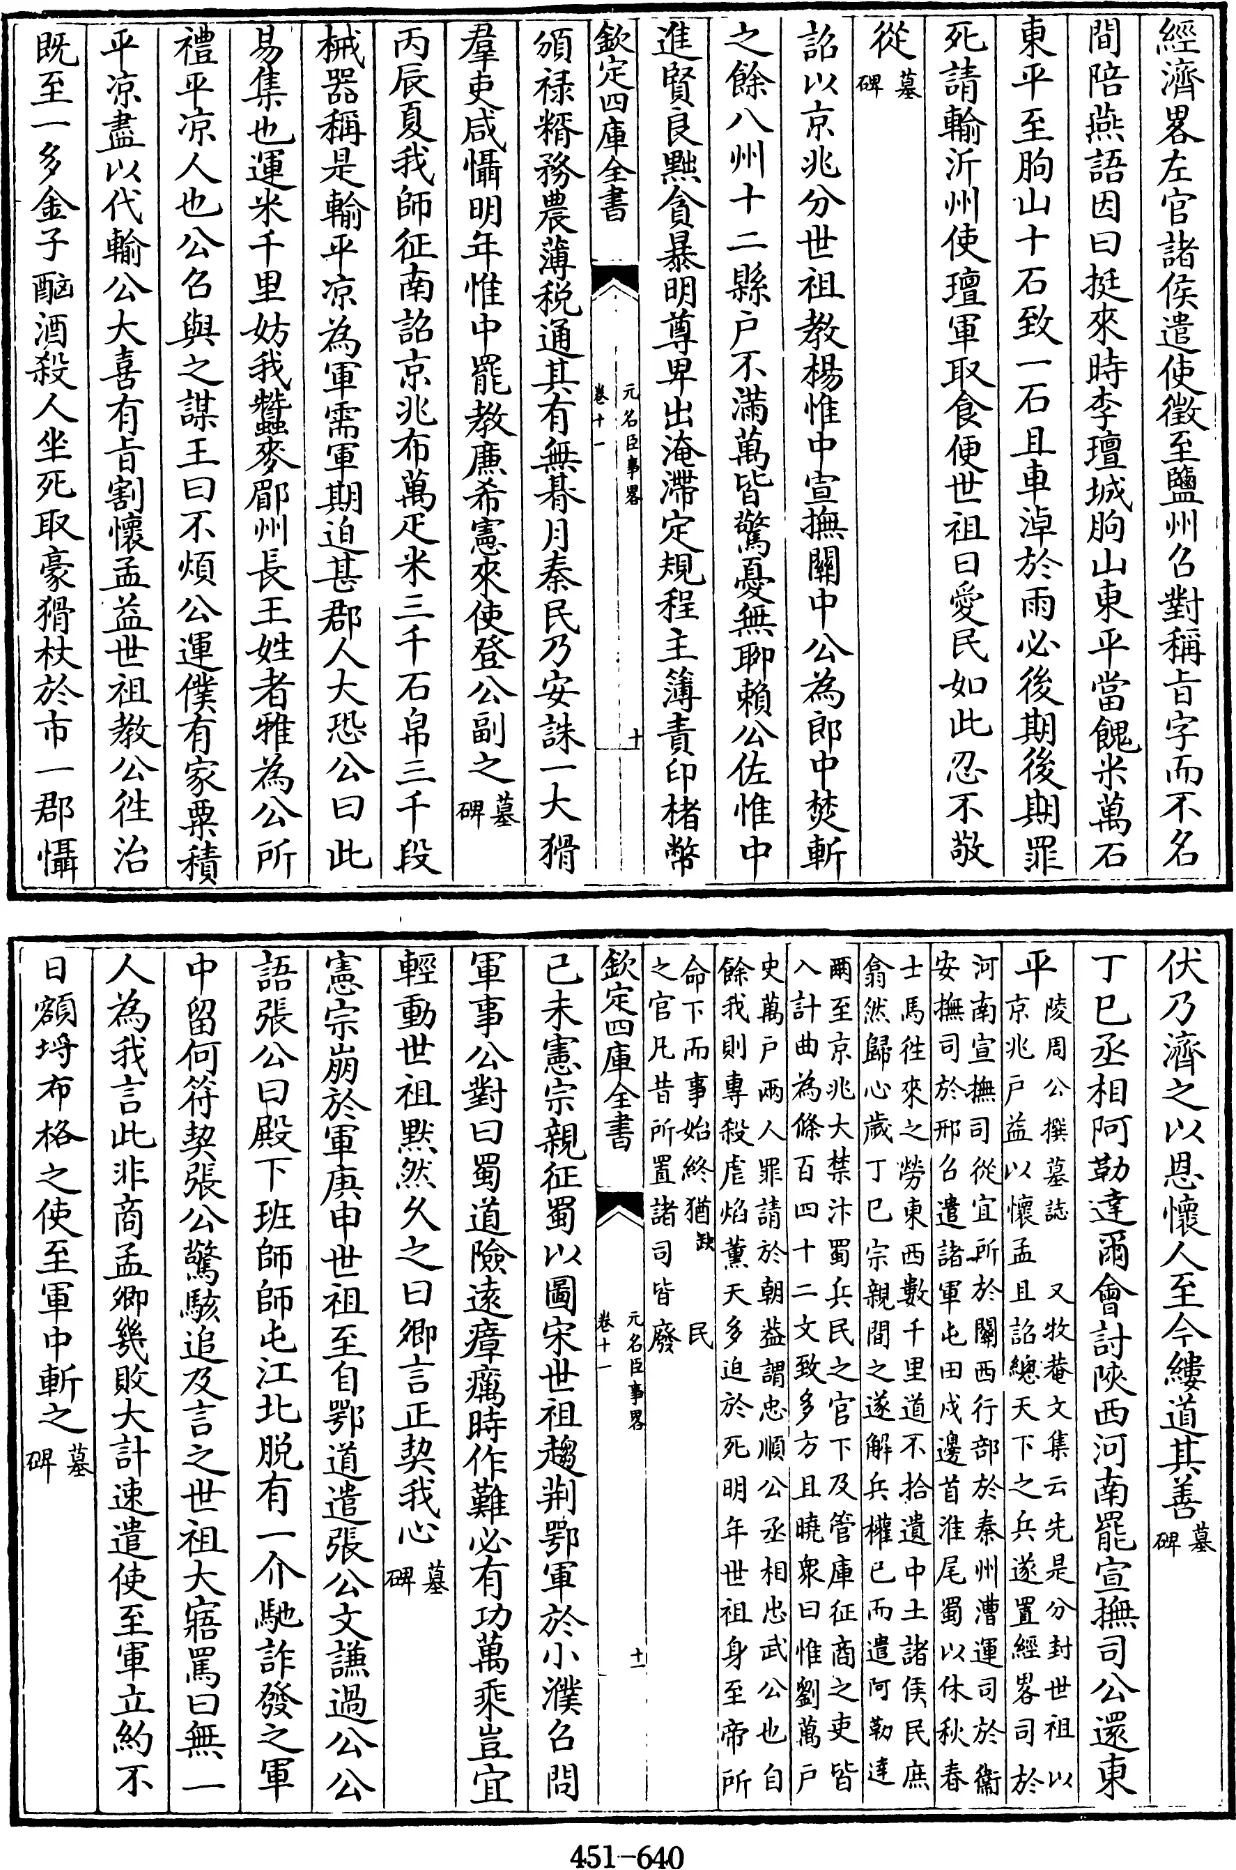 經濟畧左官諸侯遣使徵至鹽州召對稱㫖字而不名
間陪燕語因曰挺來時李璮城朐山東平當餽米萬石
東平至朐山十石致一石且車淖於雨必後期後期罪
死請輸沂州使璮軍取食便世祖曰愛民如此忍不敬
從墓碑
詔以京兆分世祖教楊惟中宣撫關中公為郎中焚斬
之餘八州十二縣户不滿萬皆驚憂無聊賴公佐惟中
進賢良黜貪暴明尊卑出淹滯定規程主簿責印楮幣
欽定四庫全書
元名臣事畧
卷十一
十
頒禄糈務農薄税通其有無朞月秦民乃安誅一大猾
羣吏咸懾明年惟中罷教廉希憲來使登公副之墓碑
丙辰夏我師征南詔京兆布萬疋米三千石帛三千段
械器稱是輸平凉為軍需軍期迫甚郡人大恐公曰此
易集也運米千里妨我蠶麥郿州長王姓者雅為公所
禮平凉人也公召與之謀王曰不煩公運僕有家粟積
平凉盡以代輸公大喜有㫖割懷孟益世祖教公徃治
既至一多金子酗酒殺人坐死取豪猾杖於市一郡懾
伏乃濟之以恩懷人至今縷道其善墓碑
丁巳丞相阿勒達爾會討陜西河南罷宣撫司公還東
平陵周公撰墓誌 又牧菴文集云先是分封世祖以
京兆户益以懷孟且詔總天下之兵遂置經畧司於
河南宣撫司從宜所於關西行部於秦州漕運司於衞
安撫司於邢召遣諸軍屯田戍邊首淮尾蜀以休秋春
士馬徃來之勞東西數千里道不拾遺中土諸侯民庶
翕然歸心歲丁巳宗親間之遂解兵權已而遣阿勒達
爾至京兆大禁汴蜀兵民之官下及管庫征商之吏皆
入計曲為條百四十二文致多方且曉衆曰惟劉萬户
史萬户兩人罪請於朝葢謂忠順公丞相忠武公也自
餘我則專殺虐焰薰天多迫於死明年世祖身至帝所
命下而事始終猶缺 民
之官凡昔所置諸司皆廢
欽定四庫全書
元名臣事畧
卷十一
十一
己未憲宗親征蜀以圖宋世祖趨荆鄂軍於小濮召問
軍事公對曰蜀道險遠瘴癘時作難必有功萬乘豈宜
輕動世祖黙然乆之曰卿言正契我心墓碑
憲宗崩於軍庚申世祖至自鄂道遣張公文謙過公公
語張公曰殿下班師師屯江北脱有一介馳詐發之軍
中留何符契張公驚駭追及言之世祖大寤罵曰無一
人為我言此非商孟卿幾敗大計速遣使至軍立約不
日額埒布格之使至軍中斬之墓碑
451-640